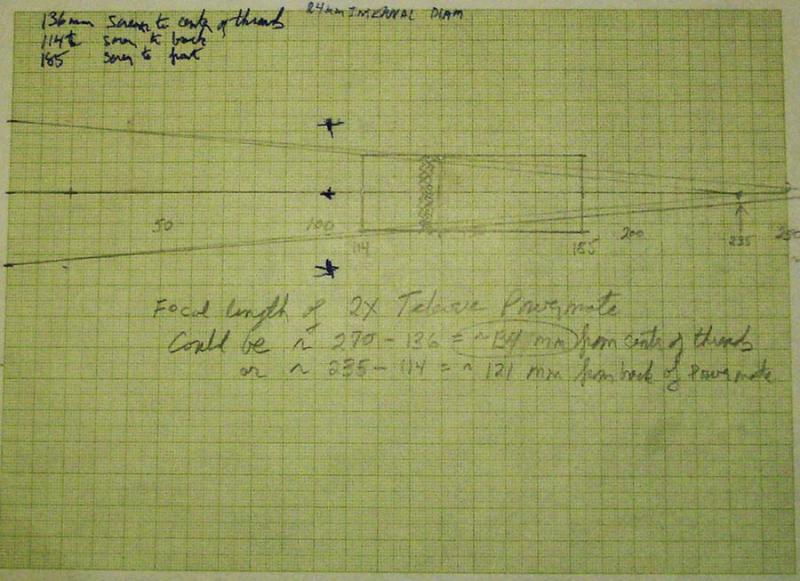 24mm INTERNAL DIAM
136mm Screen to center of threads
114 screen to back
185 screen to front
50
100
114
185
200
235
250
Focal length of 2X Televue Powermate
Could be ~ 270 - 136 = ~134 mm from center of threads
or ~ 235 - 114 = ~ 121 mm from back of Powermate